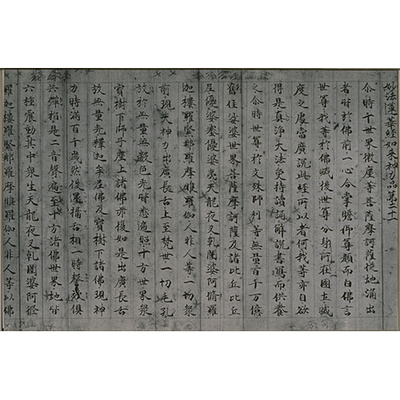 妙法蓮華經如來神力品第二十一
尒時千世界微塵等菩薩摩訶薩從地涌出
者皆於佛前一心合掌瞻仰尊顏而白佛言
世尊我等於佛滅後世尊分身所在國土滅
度之處當廣說此經所以者何我等亦自欲
得是真淨大法受持讀誦解說書寫而供養
之尒時世尊於文殊師利等無量百千万億
舊住娑婆世界菩薩摩訶薩及諸比丘比丘
尼優婆塞優婆夷天龍夜叉乾闥婆阿脩羅
迦樓羅緊那羅摩睺羅伽人非人等一切衆
前現大神力出廣長舌上至梵世一切毛孔
放於無量無數色光皆悉遍照十方世界衆
寶樹下師子座上諸佛亦復如是出廣長舌
放無量光釋迦牟尼佛及寶樹下諸佛現神
力時滿百千歲然後還攝舌相一時謦欬俱
共彈指是二音聲遍至十方諸佛世界地皆
六種震動其中衆生天龍夜叉乾闥婆阿脩
羅迦樓羅緊那羅摩睺羅伽人非人等以佛